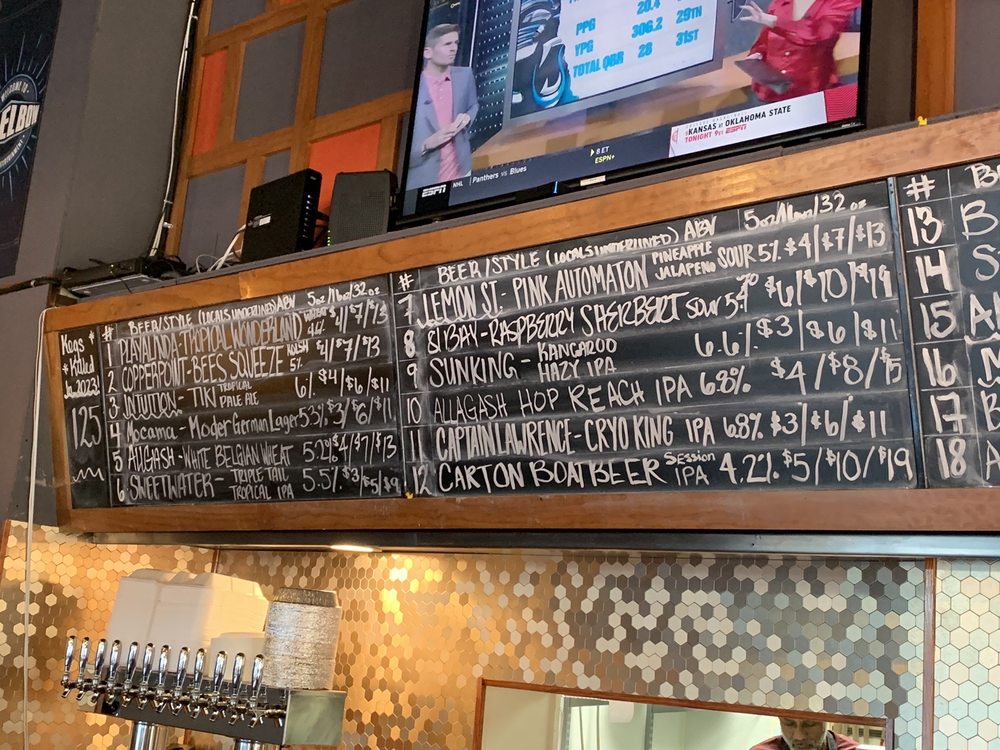 ELBOW
PPG 20.4
YPG 306.2 29TH
TOTAL QBR 28 31ST
KANSAS AT OKLAHOMA STATE
TONIGHT 9ET ESPN
8 ET
ESPN+
ESPN NHL Panthers vs Blues
Kegs
Killed
in 2023!
125
# BEER/STYLE (LOCALS UNDERLINED) ABV 5oz/16oz/32oz
1 PLAYALINDA - TROPICAL WONDERLAND 4.4% $4/$7/$13
2 COPPERPOINT - BEES SQUEEZE 5% $4/$7/$13
3 INTUITION - TIKI TROPICAL PALE ALE 6% $4/$6/$11
4 Mocama - Moder German Lager 5.3% $3/$6/$11
5 ALLAGASH - WHITE BELGIAN WHEAT 5.2% $4/$7/$13
6 SWEETWATER - TRIPLE TAIL TROPICAL IPA 5.5% $3/$5/$9
# BEER/STYLE (LOCALS UNDERLINED) ABV 5oz/16oz/32oz
7 LEMON ST. - PINK AUTOMATON PINEAPPLE JALAPENO SOUR 5% $4/$7/$13
8 81BAY - RASPBERRY SHERBERT SOUR 5.4% $6/$10/$19
9 SUNKING - KANGAROO HAZY IPA 6.6% $3/$6/$11
10 ALLAGASH HOP REACH IPA 6.8% $4/$8/$15
11 CAPTAIN LAWRENCE - CRYO KING IPA 6.8% $3/$6/$11
12 CARTON BOATBEER SESSION IPA 4.2% $5/$10/$19
#
13
14
15
16
17
18